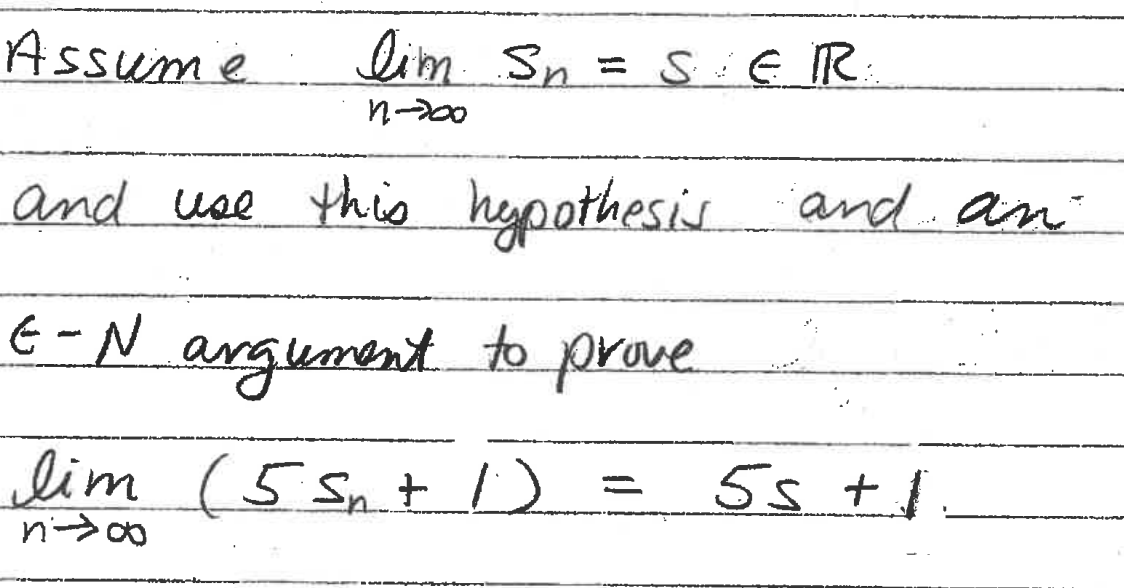 Assume lim Sn = S ∈ ℝ
n→∞
and use this hypothesis and an
ϵ-N argument to prove
lim (5 Sn + 1) = 5S + 1.
n→∞